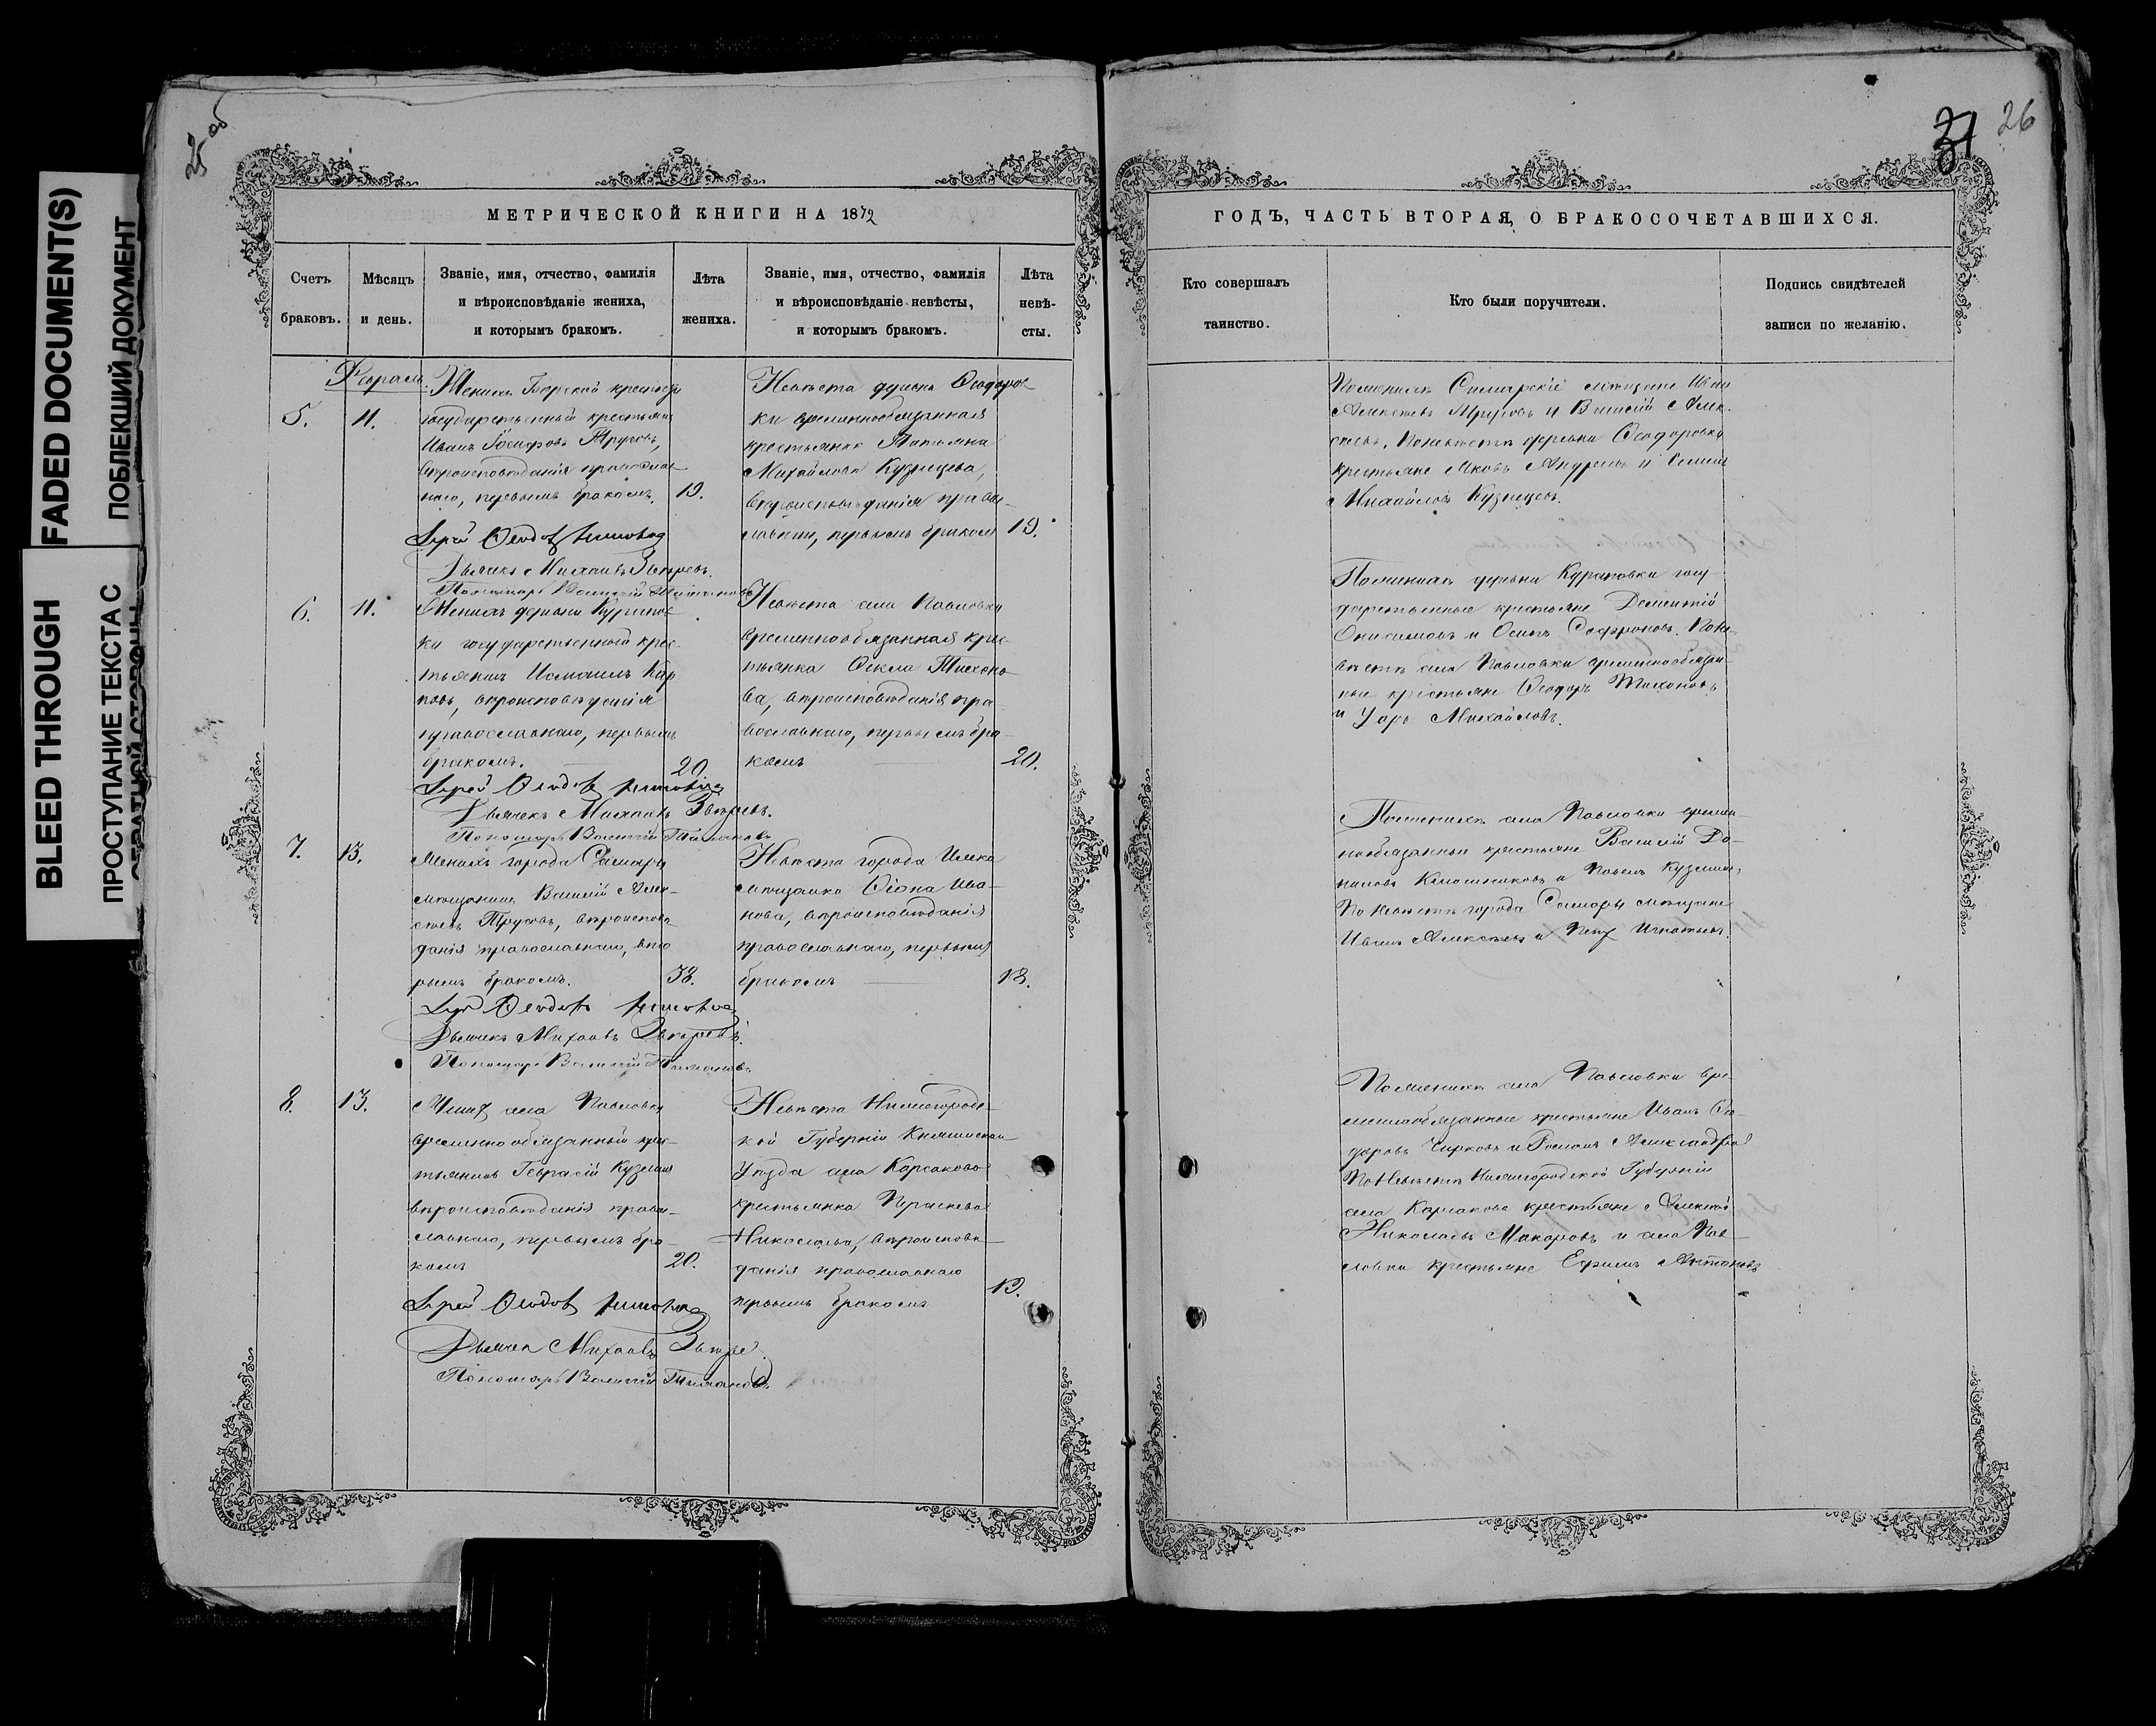 FADED DOCUMENT(S)
ПОБЛЕКШИЙ ДОКУМЕНТ
BLEED THROUGH
ПРОСТУПАНИЕ ТЕКСТА С
ОБРАТНОЙ СТОРОНЫ
25 об
МЕТРИЧЕСКОЙ КНИГИ НА 1872
Счетъ
браковъ.
Мѣсяцъ
и день.
Званіе, имя, отчество, фамилія
и вѣроисповѣданіе жениха,
и которымъ бракомъ.
Лѣта
жениха.
Званіе, имя, отчество, фамилія
и вѣроисповѣданіе невѣсты,
и которымъ бракомъ.
Лѣта
невѣ-
сты.
Февраль
5.
11.
Женихъ
государственный крестьянинъ
Иванъ Іосифовъ Трусовъ,
вѣроисповѣданія православ
наго, первымъ бракомъ.
19.
Невѣста деревни Ѳеодоров
ки временнообязанная
крестьянка Татьяна
Михайлова Кузнецова,
вѣроисповѣданія право-
славнаго, первымъ бракомъ
19.
Іерей Ѳеодотъ
Дьячекъ Михаилъ Звѣревъ.
Пономарь Василій
6.
11.
Женихъ деревни Курапов
ки государственный крес-
тьянинъ Исмаилъ Кар
повъ, вѣроисповѣданія
православнаго, первымъ
бракомъ.
20.
Невѣста села Павловки
временнообязанная крес-
тьянка Ѳекла Тихоно-
ва, вѣроисповѣданія пра-
вославнаго, первымъ бра-
комъ
20.
Іерей Ѳеодотъ
Дьячекъ Михаилъ Звѣревъ.
Пономарь Василій
7.
13.
Женихъ города Самары
мѣщанинъ Василій Алек-
сѣевъ Трусовъ, вѣроисповѣ
данія православнаго, вто
рымъ бракомъ.
38.
Невѣста города
мѣщанка Ива-
нова, вѣроисповѣданія
православнаго, первымъ
бракомъ
18.
Іерей Ѳеодотъ
Дьячекъ Михаилъ Звѣревъ.
Пономарь Василій
8.
13.
Жених села Павловки
временнообязанный крес-
тьянинъ Герасій Кузмин
вѣроисповѣданія право-
славнаго, первымъ бра-
комъ
20.
Невѣста Нижегородс-
кой Губерніи Княгининскаго
Уѣзда села Корсаково
крестьянка
Николаева, вѣроисповѣ-
данія православнаго
первымъ бракомъ
19.
Іерей Ѳеодотъ
Дьячекъ Михаилъ
Пономарь Василій
26
ГОДЪ, ЧАСТЬ ВТОРАЯ, О БРАКОСОЧЕТАВШИХСЯ.
Кто совершалъ
таинство.
Кто были поручители.
Подпись свидѣтелей
записи по желанію.
По женихѣ Самарскіе мѣщане Иванъ
Алексѣевъ Трусовъ и Василій Алек-
сѣевъ. По невѣстѣ деревни Ѳеодоровки
крестьяне Яковъ Андреевъ и Семенъ
Михайловъ Кузнецовъ.
По женихѣ деревни Кураповки госу-
дарственные крестьяне Дементій
Онисимовъ и Осипъ Сафроновъ. По не-
вѣстѣ села Павловки временнообязан-
ные крестьяне Ѳеодоръ Тихоновъ
и Уаръ Михайловъ.
По женихѣ села Павловки времен-
нообязанные крестьяне Василій Да-
ниловъ и Павелъ Кузминъ,
По невѣстѣ города Самары мѣщане
Иванъ Алексѣевъ и Петр Игнатьевъ.
По женихѣ села Павловки вре-
меннообязанные крестьяне Иванъ Ѳео-
доровъ Чирковъ и Романъ Александровъ
По Невѣстѣ Нижегородской Губерніи
села Корсакова крестьяне Алексѣй
Николаевъ Макаровъ и села Пав-
ловки крестьяне Ефимъ Антоновъ